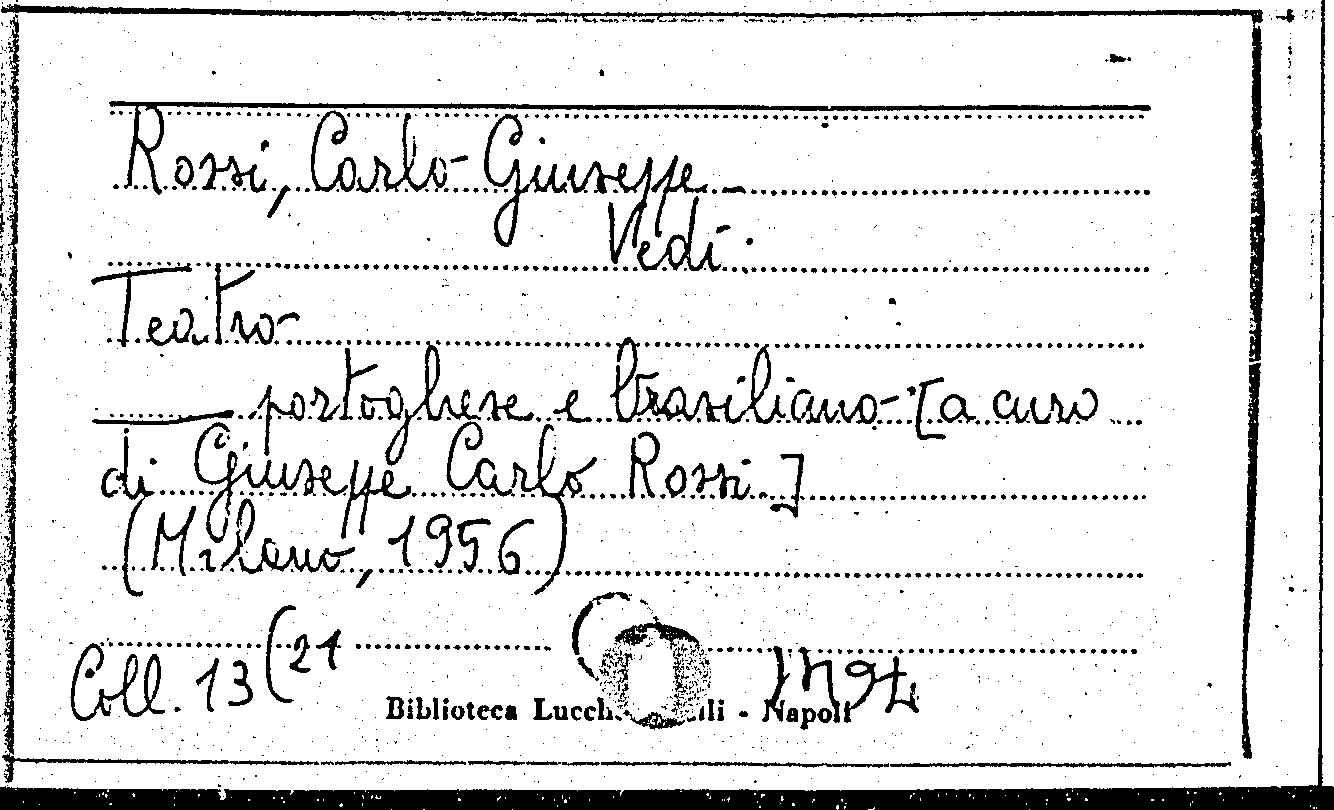 Rossi, Carlo Giuseppe -
Vedi.
Teatro
____ portoghese e brasiliano - [a cura
di Giuseppe Carlo Rossi.]
(Milano, 1956)
Coll. 13 (21
Biblioteca Lucch li - Napoli